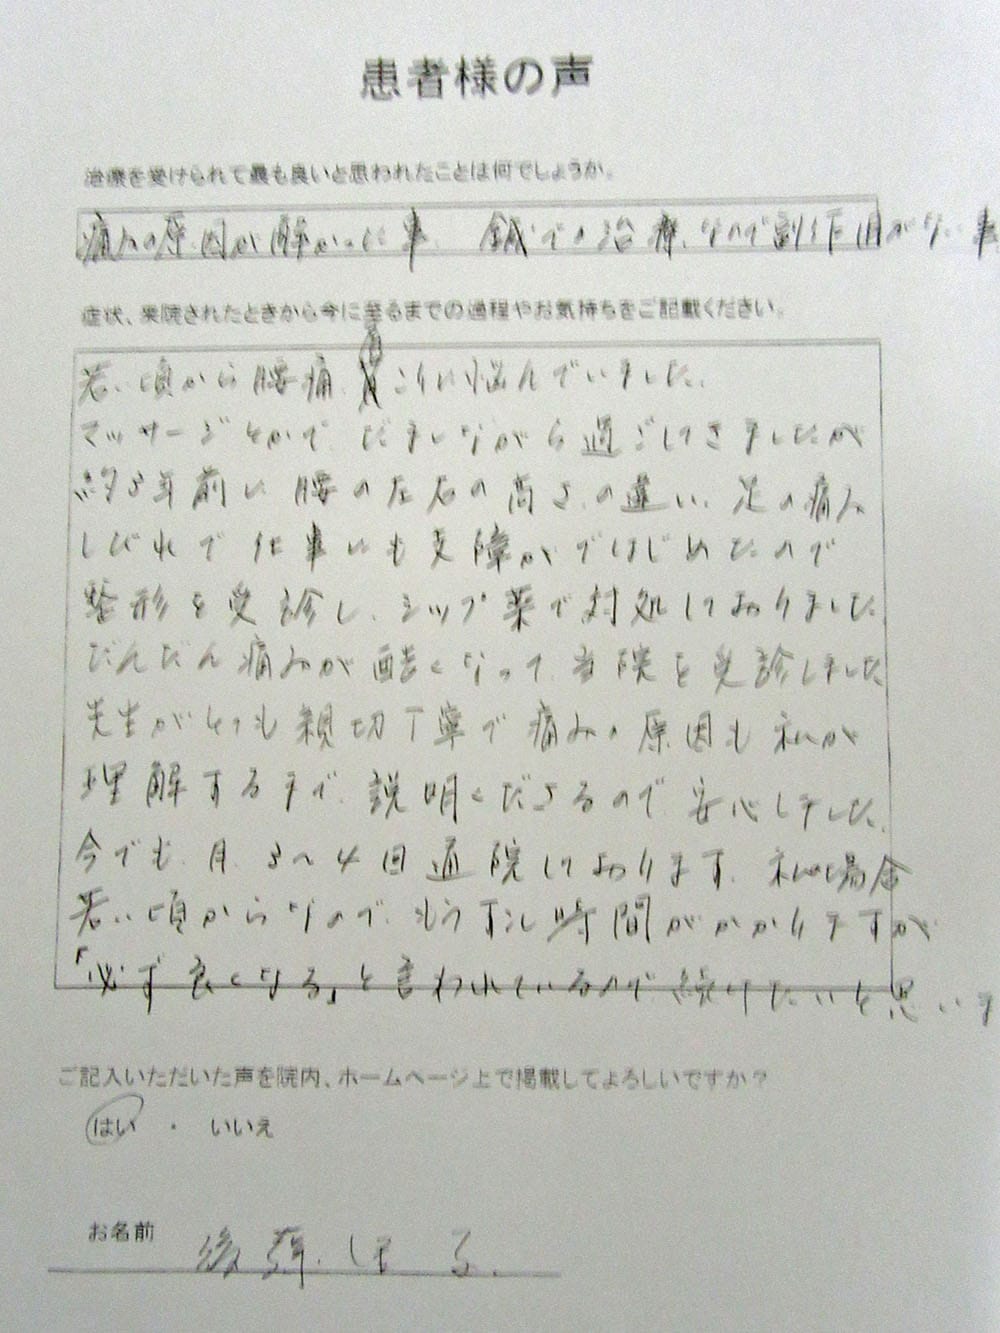 患者様の声
治療を受けられて最も良いと思われたことは何でしょうか。
痛みの原因が解かった事 鍼での治療、なので副作用がない事
症状、来院されたときから今に至るまでの過程やお気持ちをご記載ください。
若い頃から腰痛、肩こりに悩んでいました。
マッサージとかで、だましながら過ごしてきましたが
約3年前に腰の左右の高さの違い、足の痛み
しびれで仕事にも支障がではじめたので
整形を受診し、シップ薬で対処しておりました
だんだん痛みが酷くなって、当院を受診しました
先生がとても親切丁寧で痛みの原因も私が
理解するまで、説明くださるので、安心しました。
今でも、月、3〜4回通院しております。私の場合
若い頃からなので、もう少し時間がかかりますが
「必ず良くなる」と言われているので続けたいと思いま
ご記入いただいた声を院内、ホームページ上で掲載してよろしいですか？
はい ・ いいえ
お名前 後藤